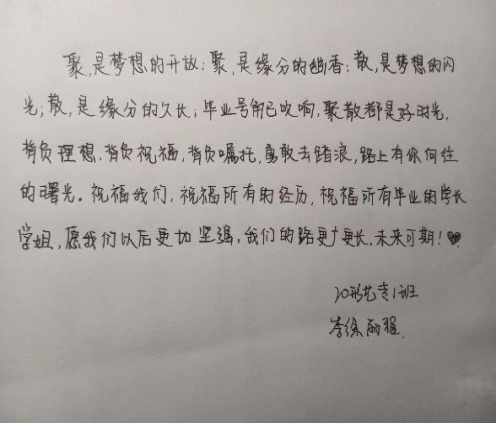 聚,是梦想的开放;聚,是缘分的幽香;散,是梦想的闪
光;散,是缘分的久长;毕业号角已吹响,聚散都是好时光,
背负理想,背负祝福,背负嘱托,勇敢去踏浪,路上有你向往
的曙光。祝福我们,祝福所有的经历,祝福所有毕业的学长
学姐,愿我们以后更加坚强,我们的路更长,未来可期!
20形艺专1班
李徐丽